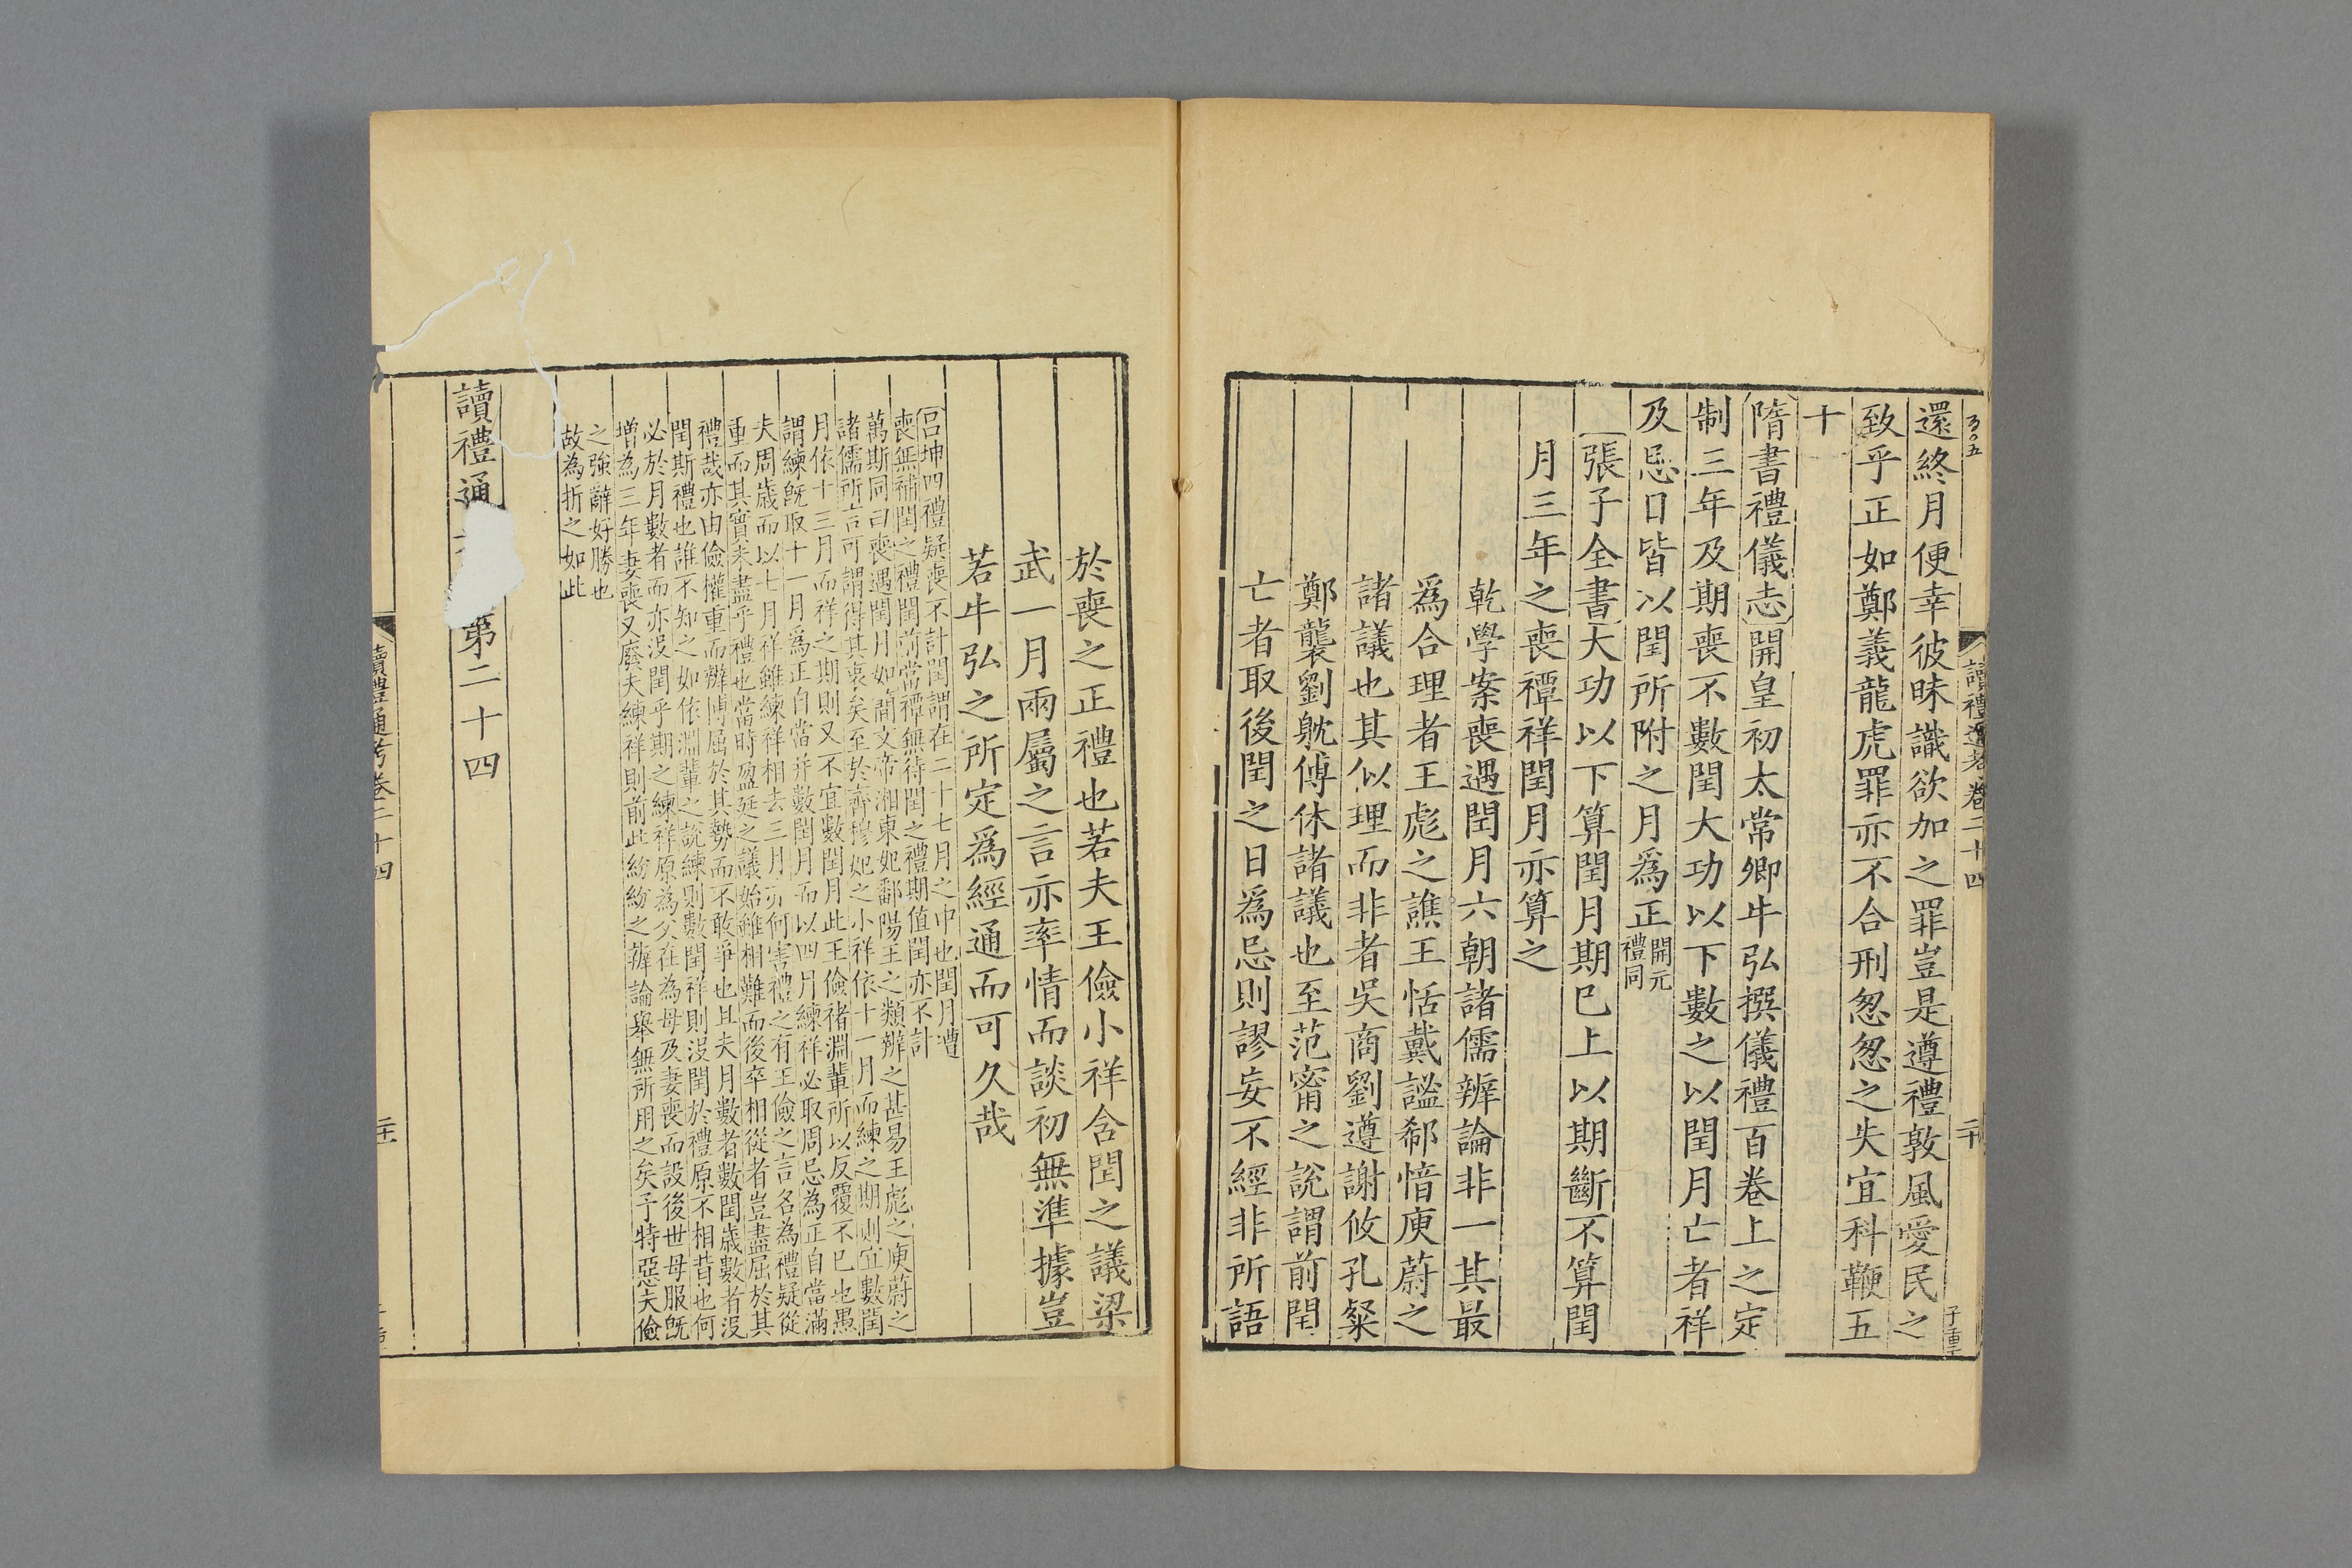 讀禮通考卷二十四
二十
子重
還終月便幸彼昧識欲加之罪豈是遵禮敦風愛民之
致乎正如鄭義龍虎罪亦不合刑怱怱之失宜科鞭五
十
隋書禮儀志開皇初太常卿牛弘撰儀禮百卷上之定
制三年及期喪不數閏大功以下數之以閏月亡者祥
及忌日皆以閏所附之月爲正開元禮同
張子全書大功以下算閏月期巳上以期斷不算閏
月三年之喪禫祥閏月亦算之
乾學案喪遇閏月六朝諸儒辨論非一其最
爲合理者王彪之譙王恬戴謐郗愔庾蔚之
諸議也其似理而非者吳商劉遵謝攸孔粲
鄭襲劉躭傅休諸議也至范甯之說謂前閏
亡者取後閏之日爲忌則謬妄不經非所語
於喪之正禮也若夫王儉小祥含閏之議梁
武一月兩屬之言亦率情而談初無準據豈
若牛弘之所定爲經通而可久哉
呂坤四禮疑喪不計閏謂在二十七月之中也閏月遭
喪無補閏之禮閏前當禫無待閏之禮期值閏亦不計
萬斯同曰喪遇閏月如簡文帝湘東妃鄱陽王之類辨之甚易王彪之庾蔚之
諸儒所言可謂得其衷矣至於齊穆妃之小祥依十一月而練之期則宜數閏
月依十三月而祥之期則又不宜數閏月此王儉褚淵輩所以反覆不已也愚
謂練旣取十一月爲正自當并數閏月而以四月練祥必取周忌為正自當滿
夫周歲而以七月祥雖練祥相去三月亦何害禮之有王儉之言名為禮疑從
重而其實未盡乎禮也當時盈廷之議始雖相難而後卒相從者豈盡屈於其
禮哉亦由儉權重而辦博屈於其勢而不敢爭也且夫月數者數閏歲數者沒
閏斯禮也誰不知之如依淵輩之說練則數閏祥則沒閏於禮原不相背也何
必於月數者而亦沒閏乎期之練祥原為父在為母及妻喪而設後世母服旣
增為三年妻喪又廢夫練祥則前此紛紛之辨論舉無所用之矣予特惡夫儉
之強辭好勝也
故為折之如此
讀禮通 第二十四
讀禮通考卷二十四